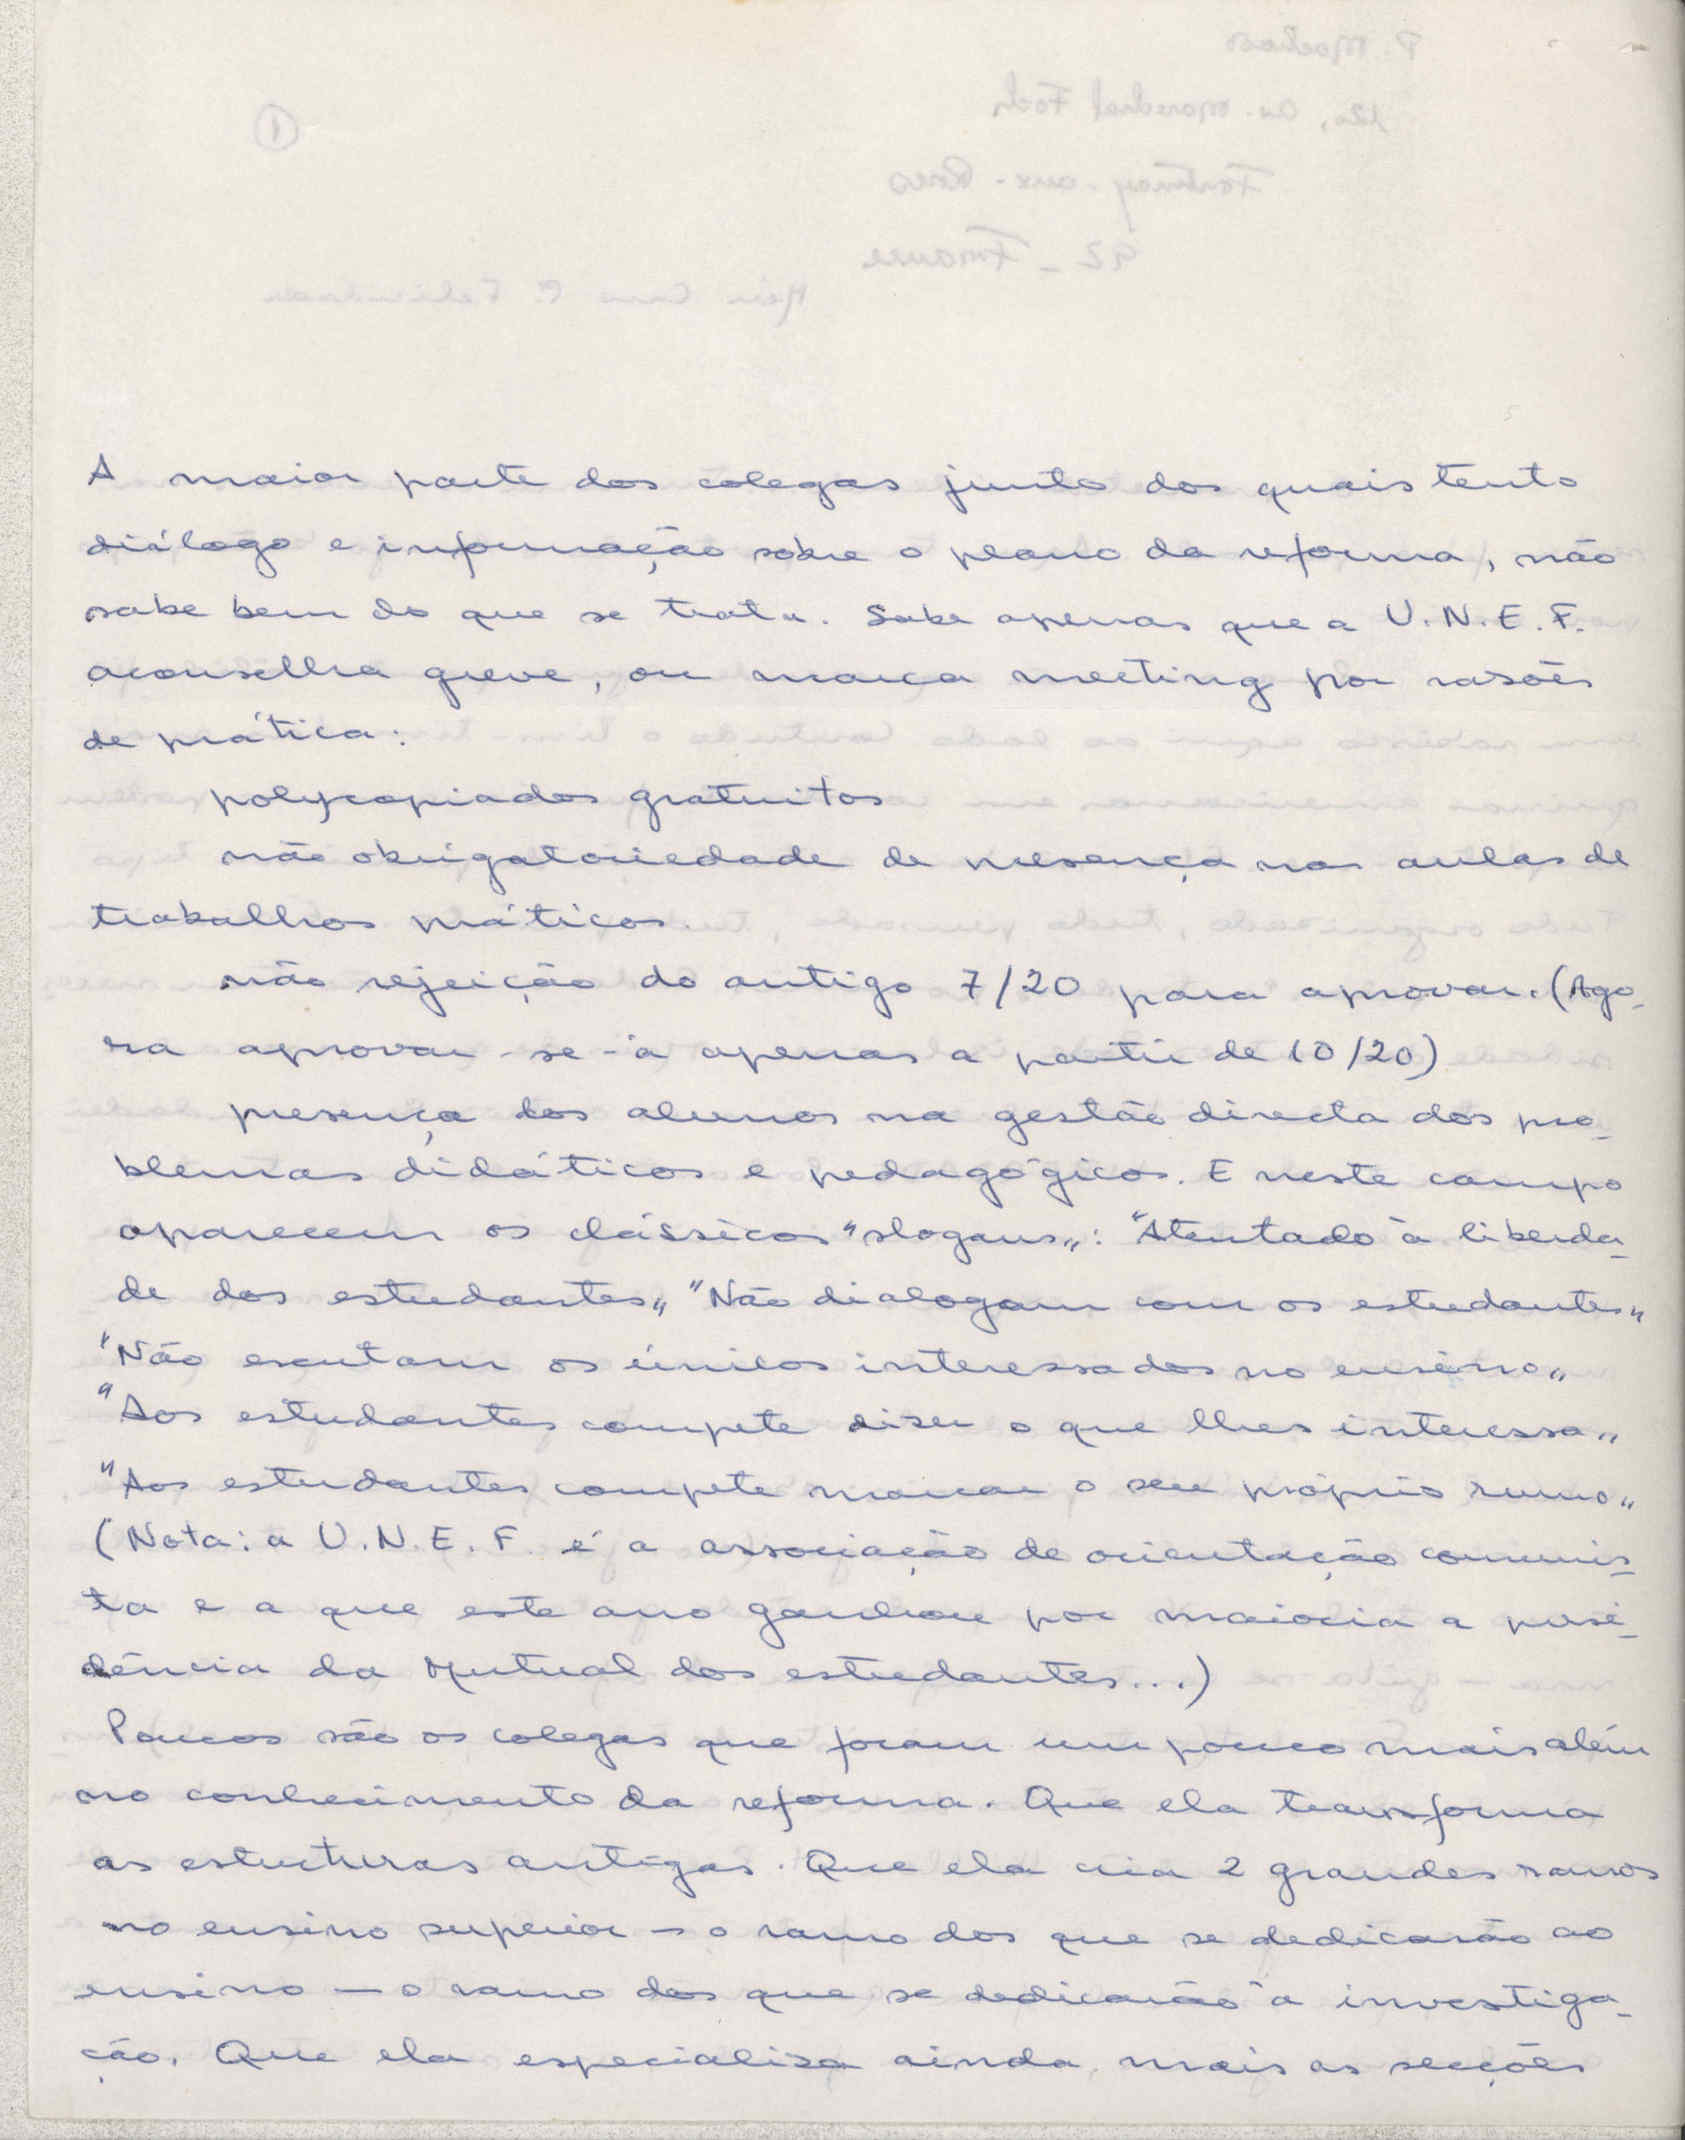 A maior parte dos colegas junto dos quais tento
diálogo e informação sobre o plano da reforma, não
sabe bem do que se trata. Sabe apenas que a U.N.E.F.
aconselha greve, ou marca meeting por rasões
de prática:
polycopiados gratuitos
não obrigatoriedade de presença nas aulas de
trabalhos práticos.
não rejeição do antigo 7/20 para aprovar. (Ago-
ra aprovar-se-á apenas a partir de 10/20)
presença dos alunos na gestão directa dos pro-
blemas didáticos e pedagógicos. E neste campo
aparecem os clássicos "slogans": "Atentado à liberda-
de dos estudantes" "Não dialogam com os estudantes"
"Não escutam os únicos interessados no ensino"
"Aos estudantes compete diser o que lhes interessa"
"Aos estudantes compete marcar o seu próprio rumo"
(Nota: a U.N.E.F. é a associação de orientação comunis-
ta e a que este ano ganhou por maioria a presi-
dência da Mutual dos estudantes...)
Poucos são os colegas que foram um pouco mais além
no conhecimento da reforma. Que ela transforma
as estructuras antigas. Que ela cria 2 grandes ramos
no ensino superior - o ramo dos que se dedicarão ao
ensino - o ramo dos que se dedicarão à investiga-
ção. Que ela especialisa ainda mais as secções